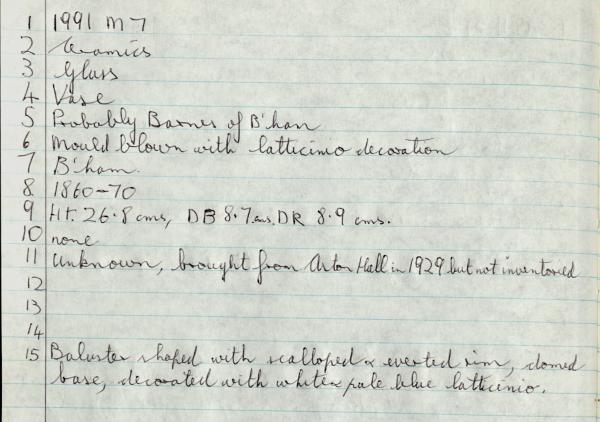 1 1991 M 7
2 Ceramics
3 Glass
4 Vase
5 Probably Barnes of B'ham
6 Mould blown with latticinio decoration
7 B'ham.
8 1860-70
9 Ht. 26.8 cms, DB 8.7cms, DR 8.9 cms.
10 none
11 Unknown, brought from Aston Hall in 1929 but not inventoried
12
13
14
15 Baluster shaped with scalloped & everted rim, domed
base, decorated with white & pale blue latticinio.